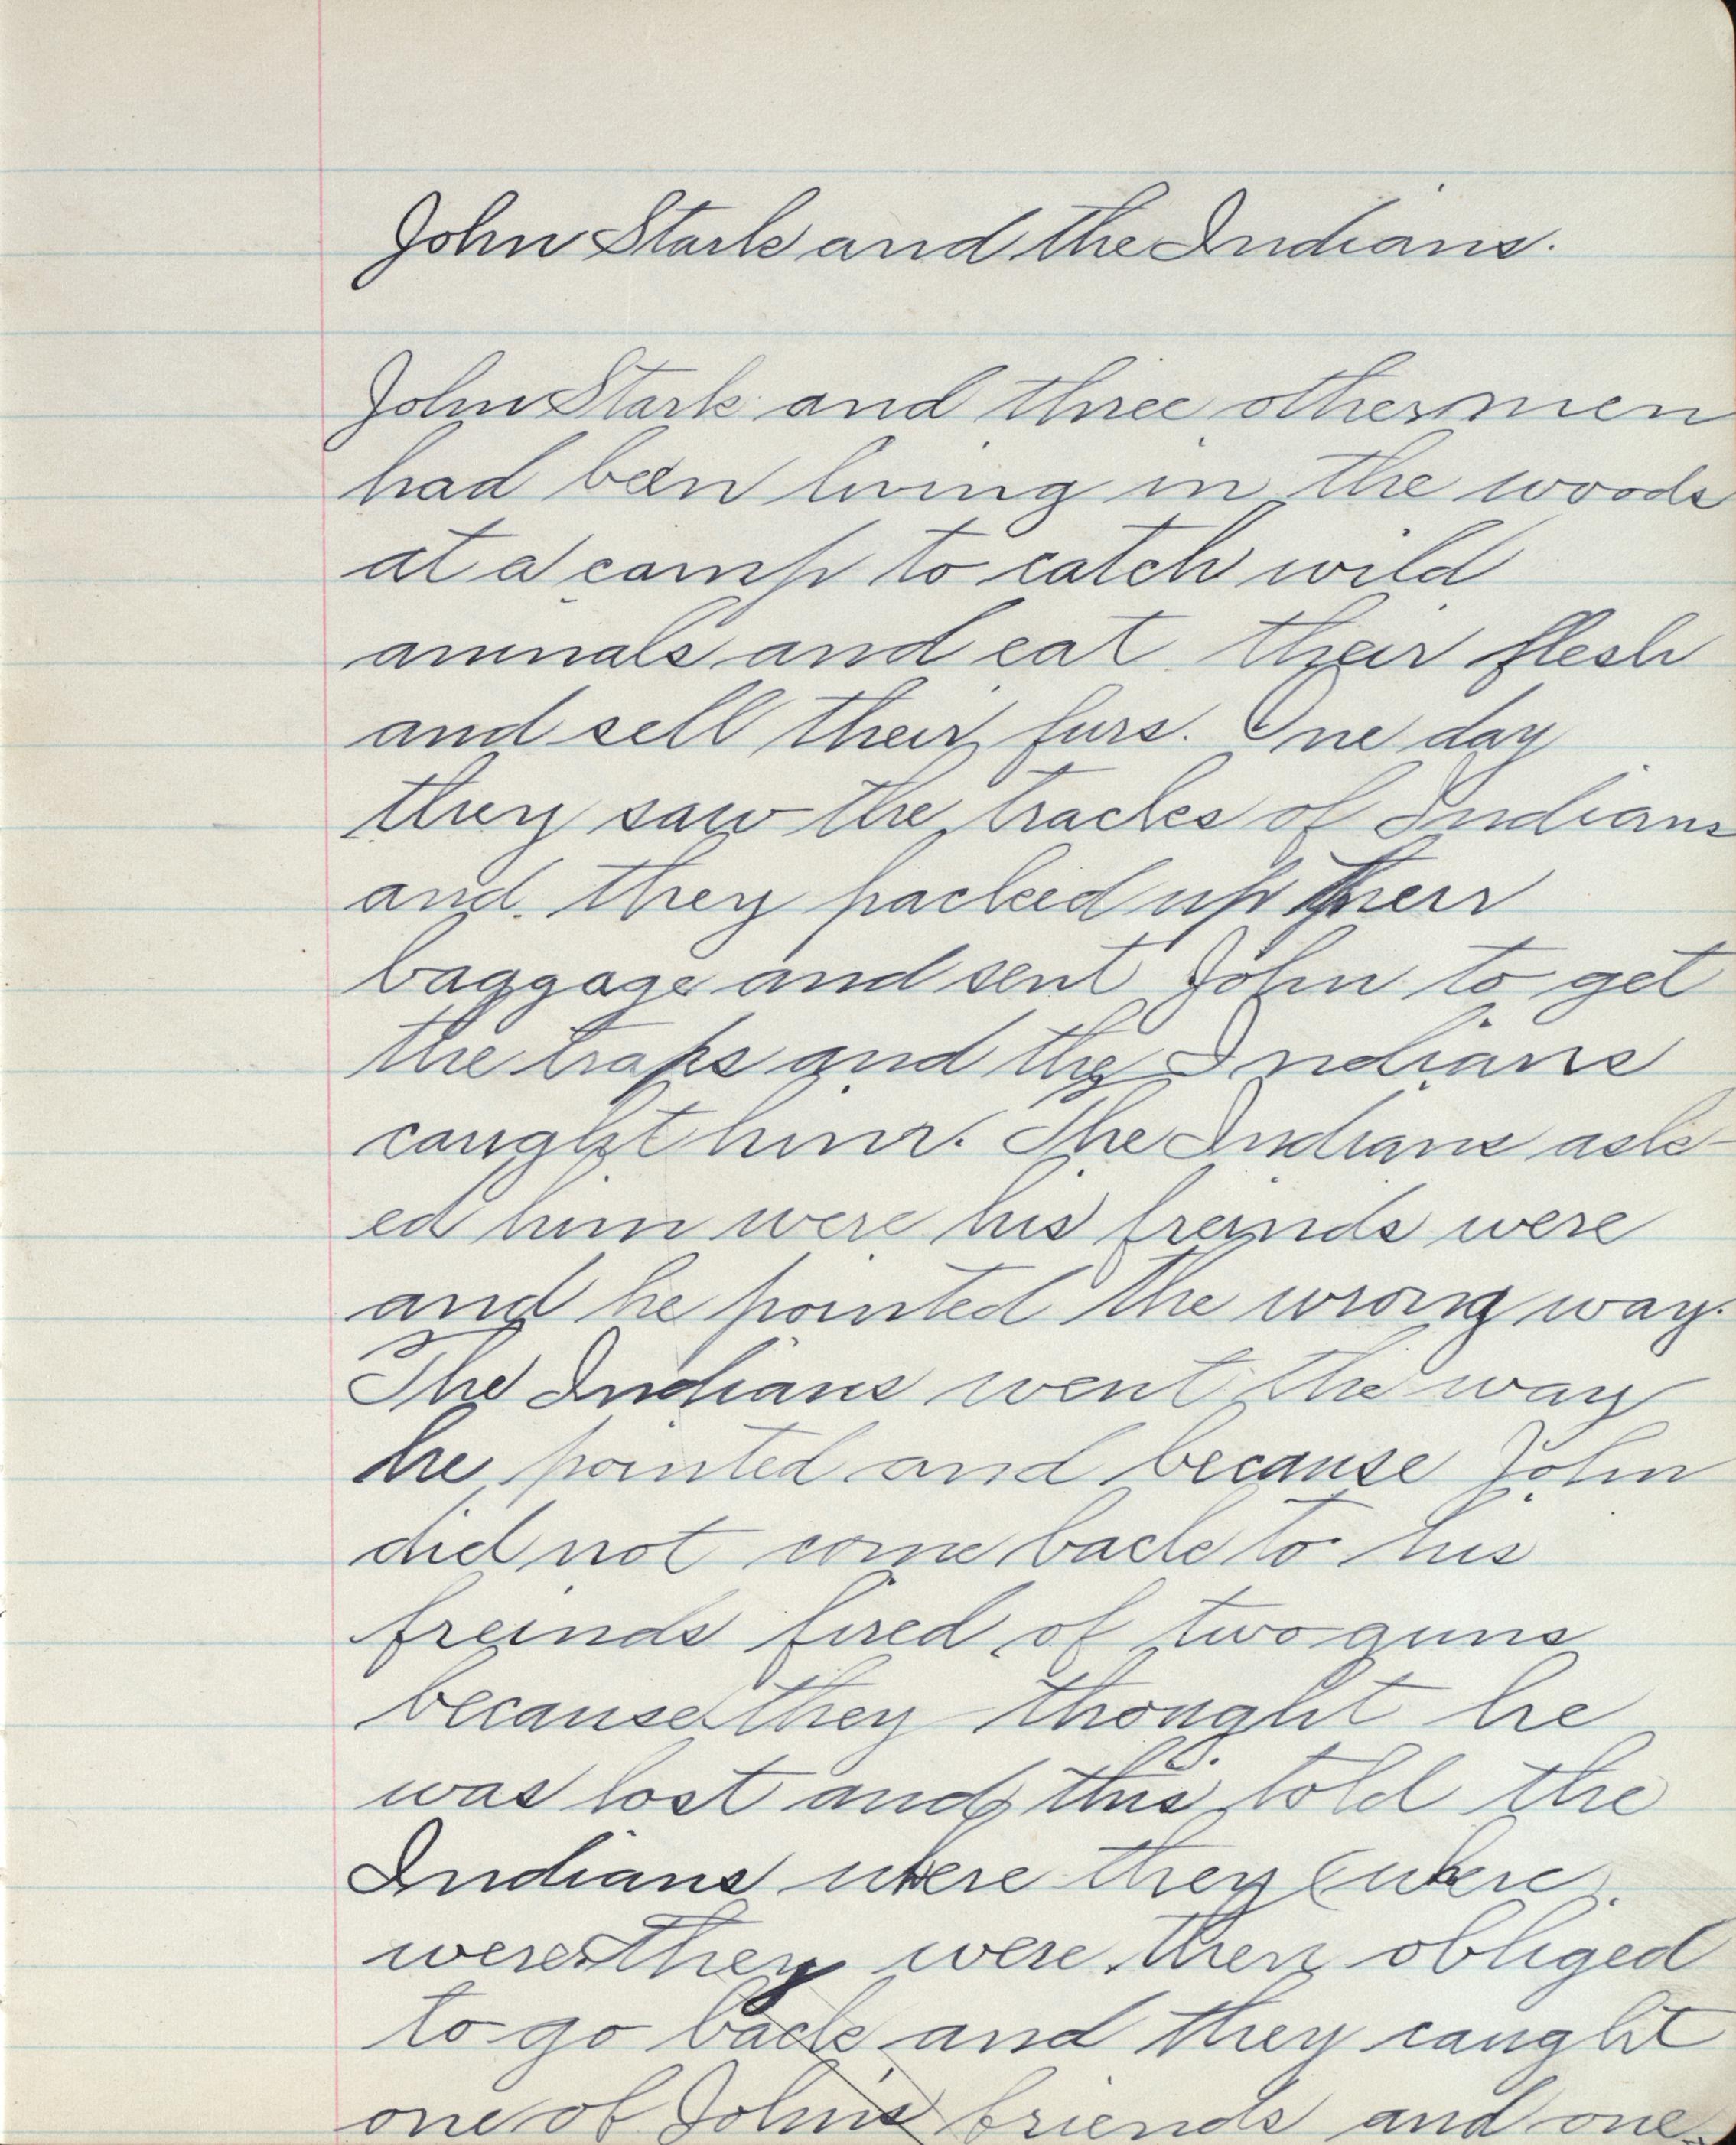 John Stark and the Indians.
John Stark and three other men
had been living in the woods
at a camp to catch wild
animals and eat their flesh
and sell their furs. One day
they saw the tracks of Indians
and they packed up their
baggage and sent John to get
the traps and the Indians
caught him. The Indians ask-
ed him were his freinds were
and he pointed the wrong way.
The Indians went the way
he pointed and because John
did not come back to his
freinds fired of two guns
because they thought he
was lost and this told the
Indians where they (where)
were they were then obliged
to go back and they caught
one of John's friends and one